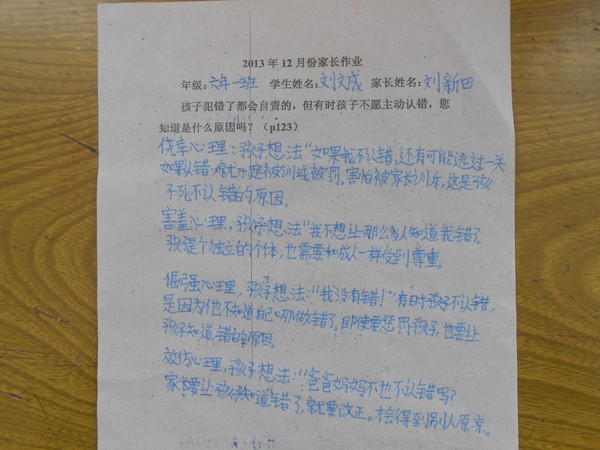 2013年12月份家长作业
年级:六年一班 学生姓名:刘文成 家长姓名:刘新田
孩子犯错了都会自责的，但有时孩子不愿主动认错，您
知道是什么原因吗？（p123）
侥幸心理：孩子想法“如果我不认错，还有可能逃过一关
如果认错 被训或被罚，害怕被家长训斥，这是孩
子死不认错的原因。
害羞心理，孩子想法“我不想让那么多人知道我错了
孩子是个独立的个体，也需要和成人一样受到尊重。
倔强心理，孩子想法：“我没有错！”有时孩子不认错，
是因为他不知道自己哪做错了，即使要惩罚孩子，也要让
孩子知道错的原因
效仿心理，孩子想法：“爸爸妈妈不也不认错吗？
家长要让孩子知道错了，就要改正。才会得到别人原凉。